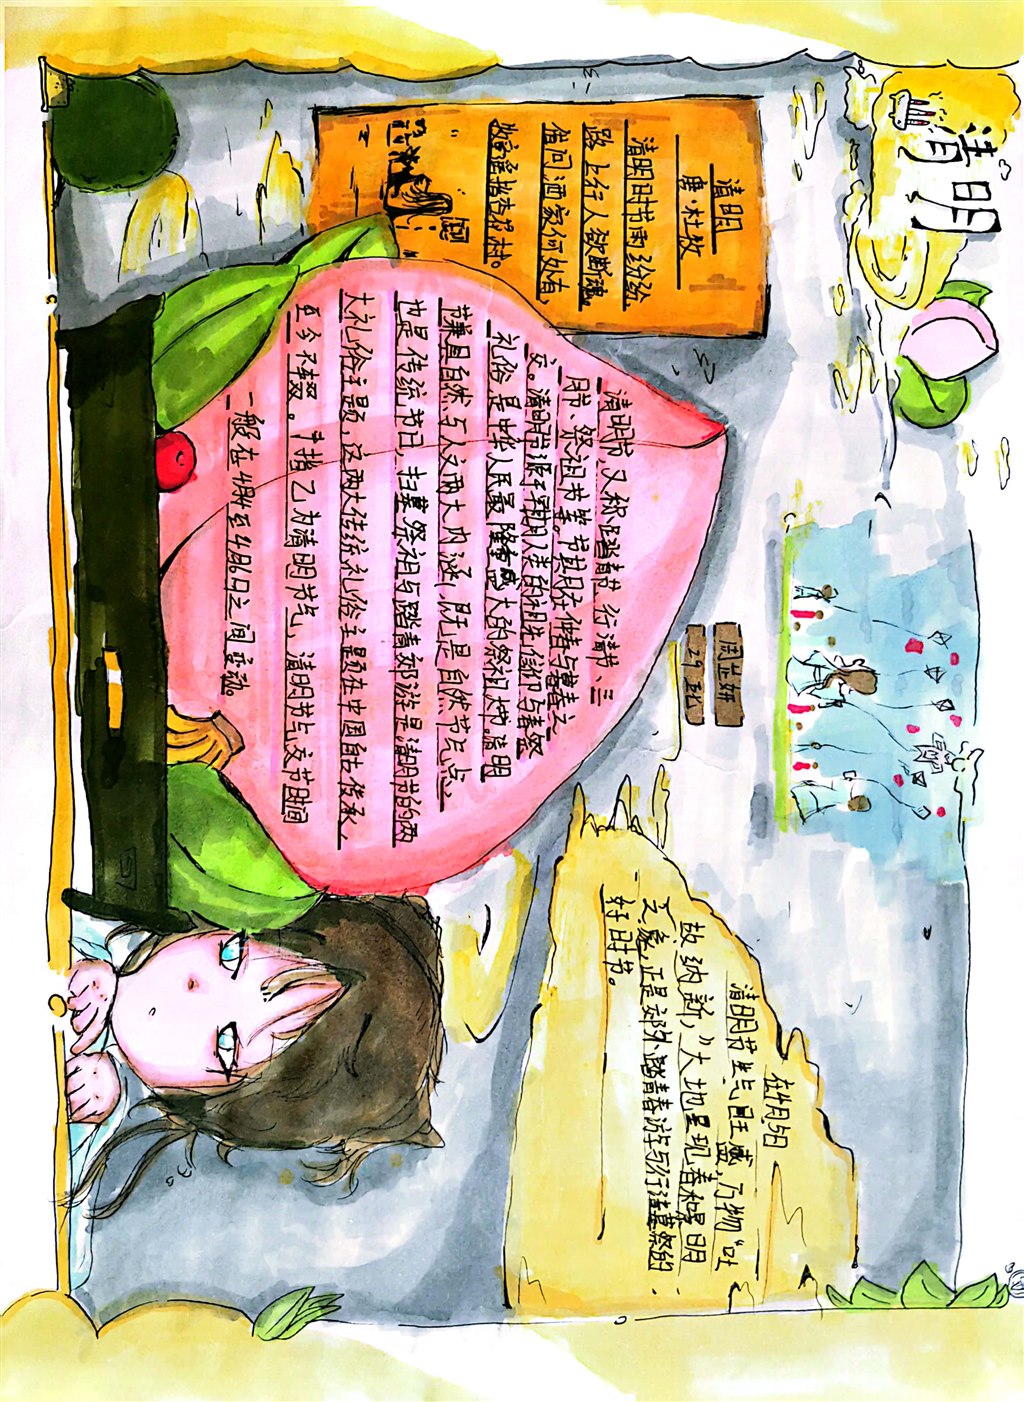 清明
清明
唐·杜牧
清明时节雨纷纷
路上行人欲断魂。
借问酒家何处有,
牧童遥指杏花村。
清明节,又称踏青节、行清节、三
月节、祭祖节等。节期在仲春与暮春之
交。清明节源于早期人类的祖先信仰与春祭
礼俗是中华人民最隆重盛大的祭祖大节。清明
节兼具自然与人文两大内涵,既是自然节气点,
也是传统节日,扫墓祭祖与踏青郊游是清明节的两
大礼俗主题,这两大传统礼俗主题在中国自古传承,
至今不辍。斗指乙为清明节气,清明节气交节时间
一般在4月4日至4月6日之间变动。
周芷妍
29班
在4月5日
清明节生气旺盛,万物“吐
故纳新,”大地呈现春和景明
之象,正是郊外踏青春游与行清墓祭的
好时节。